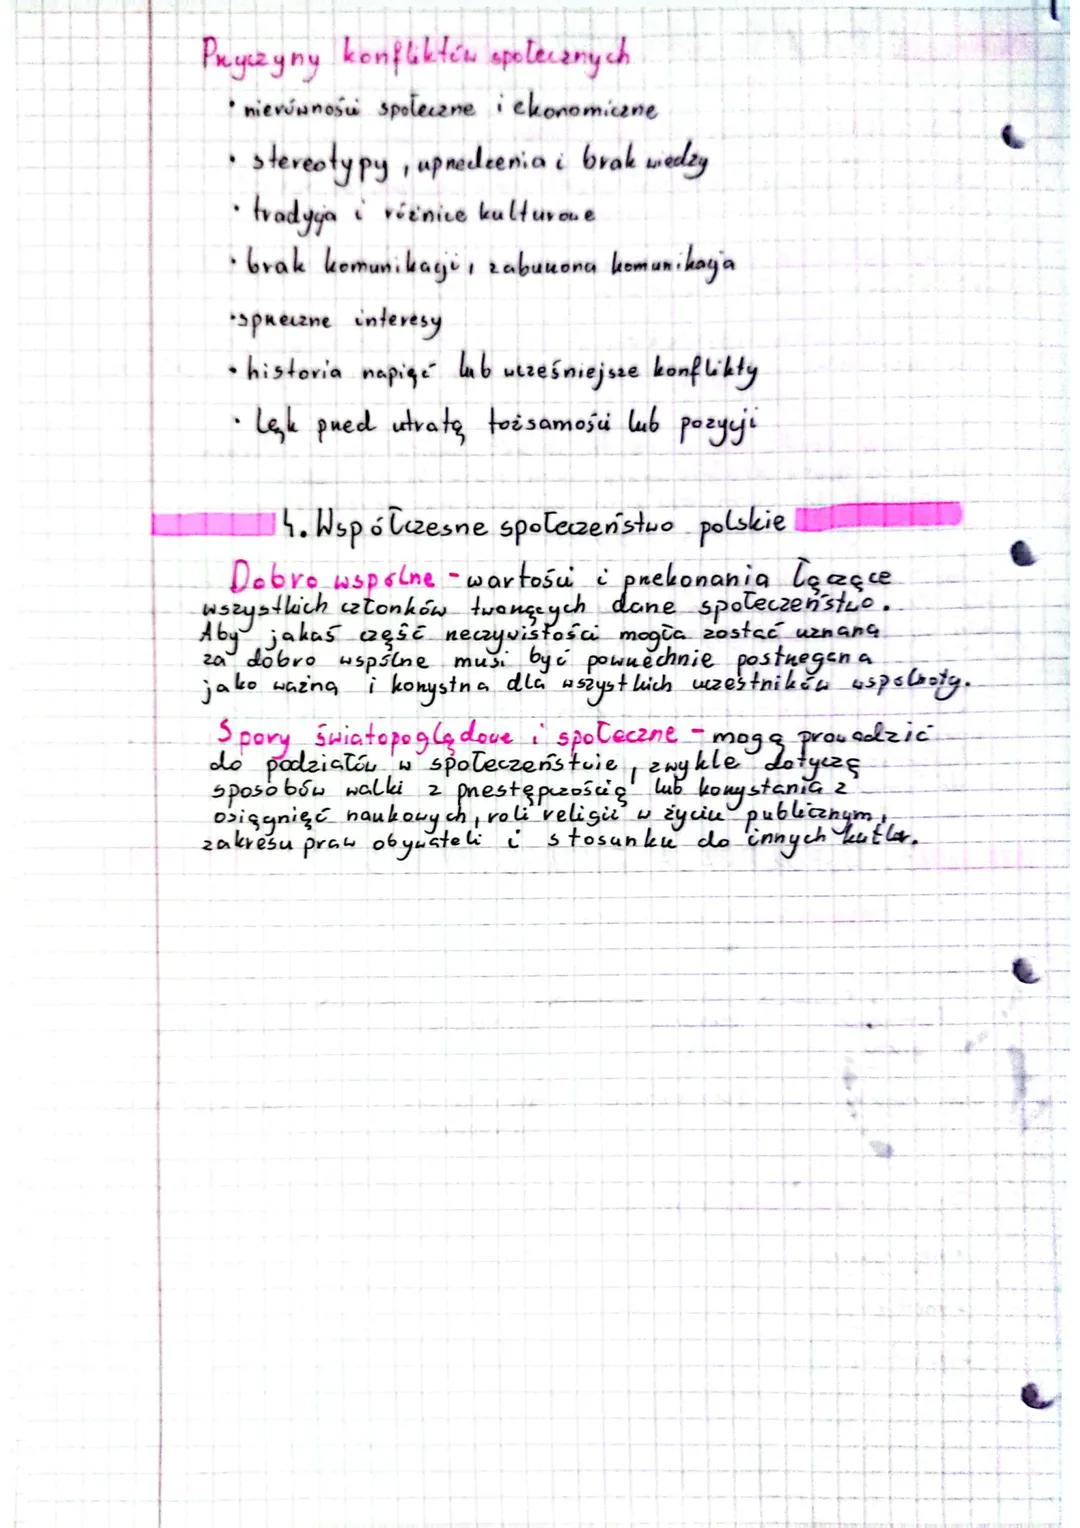 Przyczyny konfliktów społecznych
• nierówności społeczne i ekonomiczne
• stereotypy, uprzedzenia i brak wiedzy
• tradycja i różnice kulturowe
• brak komunikacji, zaburzona komunikacja
• sprzeczne interesy
• historia napięć lub wcześniejsze konflikty
• Lęk przed utratą tożsamości lub pozycji
4. Współczesne społeczeństwo polskie
Dobro wspólne - wartości i przekonania łączące
wszystkich członków tworzących dane społeczeństwo.
Aby jakaś część rzeczywistości mogła zostać uznana
za dobro wspólne musi być powszechnie postrzegana
jako ważna i korzystna dla wszystkich uczestników wspólnoty.
Spory światopoglądowe i społeczne - mogą prowadzić
do podziałów w społeczeństwie, zwykle dotyczą
sposobów walki z przestępczością lub korzystania z
osiągnięć naukowych, roli religii w życiu publicznym,
zakresu praw obywateli i stosunku do innych kultur.